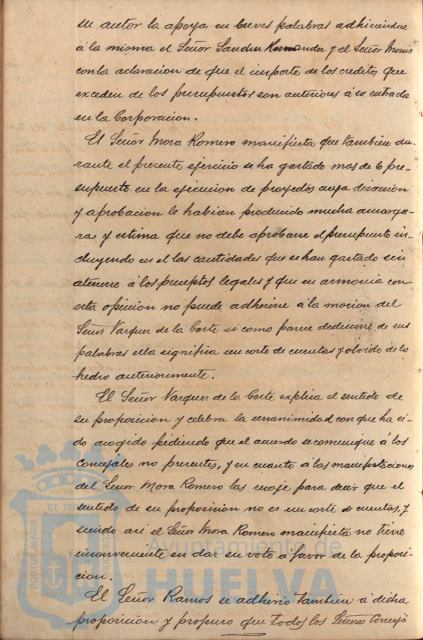 su autor la apoya en breves palabras adhiriendose
á la misma el Señor Sanchez Hernandez y el Señor
con la aclaracion de que el importe de los creditos que
exceden de los presupuestos son anteriores á su entrada
en la Corporacion.
El Señor Mora Romero manifiesta que tambien du-
rante el presente ejercicio se ha gastado mas de lo pre-
supuesto en la ejecucion de proyectos cuya discusion
y aprobacion le habian producido mucha amargu-
ra y estima que no debe aprobarse el presupuesto in-
cluyendo en el las cantidades que se han gastado sin
atenerse á los preceptos legales y que en armonia con
esta opinion no puede adherirse á la mocion del
Señor Vazquez de la Corte si como parece deducirse de sus
palabras ella significa un corte de cuentas y olvido de lo
hecho anteriormente.
El Señor Vazquez de la Corte explica el sentido de
su proposicion y celebra la unanimidad con que ha si-
do acogido pidiendo que el acuerdo se comunique á los
concejales no presentes, y en cuanto á las manifestaciones
del Señor Mora Romero las recoje para decir que el
sentido de su proposicion no es un corte de cuentas, y
siendo asi el Señor Mora Romero manifiesta no tiene
inconveniente en dar su voto á favor de la proposi-
cion.
El Señor Ramos se adhirió tambien á dicha
proposicion y propuso que todos los Señores Conceja
Ayuntamiento de
HUELVA